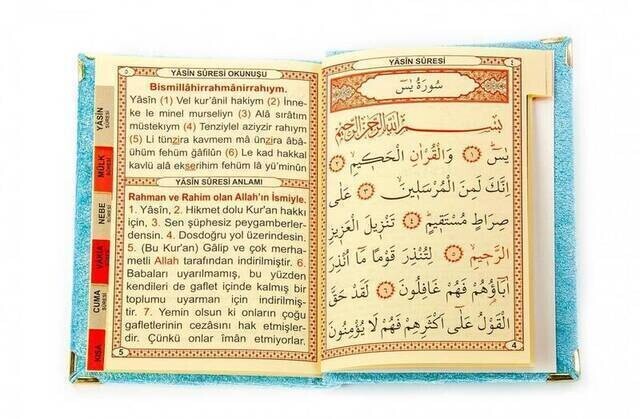 ٥
YÂSÎN SÛRESİ OKUNUŞU
Bismillâhirrahmânirrahıym.
Yâsîn (1) Vel kur'ânil hakiym (2) İnne-
ke le minel murseliyn (3) Alâ sırâtım
müstekıym (4) Tenziylel aziyzir rahıym
(5) Li tünzira kavmem mâ ünzira âbâ-
ühüm fehüm ğâfilûn (6) Le kad hakkal
kavlü alâ ekserihim fehüm lâ yü'minûn
YÂSÎN SÛRESİ ANLAMI
Rahman ve Rahim olan Allah'ın İsmiyle.
1. Yâsîn, 2. Hikmet dolu Kur'an hakkı
için, 3. Sen şüphesiz peygamberler-
densin. 4. Dosdoğru yol üzerindesin.
5. (Bu Kur'an) Gâlip ve çok merha-
metli Allah tarafından indirilmiştir. 6.
Babaları uyarılmamış, bu yüzden
kendileri de gaflet içinde kalmış bir
toplumu uyarman için indirilmiş-
tir. 7. Yemin olsun ki onların çoğu
gafletlerinin cezâsını hak etmişler-
dir. Çünkü onlar îman etmiyorlar.
5
YÂSİN
SÛRESİ
MÜLK
SÛRESİ
NEBE
SÛRESİ
VÂKIA
SÛRESİ
CUMA
SÛRESİ
KISA
YÂSÎN SÛRESİ
٤
سُورَةُ يٰسٓ
بِسْمِ اللّٰهِ الرَّحْمٰنِ الرَّحِيمِ
يٰسٓ ﴿١﴾ وَالْقُرْاٰنِ الْحَك۪يمِ ﴿٢﴾
اِنَّكَ لَمِنَ الْمُرْسَل۪ينَ ﴿٣﴾ عَلٰى
صِرَاطٍ مُسْتَق۪يمٍ ﴿٤﴾ تَنْز۪يلَ الْعَز۪يزِ
الرَّح۪يمِ ﴿٥﴾ لِتُنْذِرَ قَوْمًا مَٓا اُنْذِرَ
اٰبَٓاؤُ۬هُمْ فَهُمْ غَافِلُونَ ﴿٦﴾ لَقَدْ حَقَّ
الْقَوْلُ عَلٰٓى اَكْثَرِهِمْ فَهُمْ لَا يُؤْمِنُونَ
4